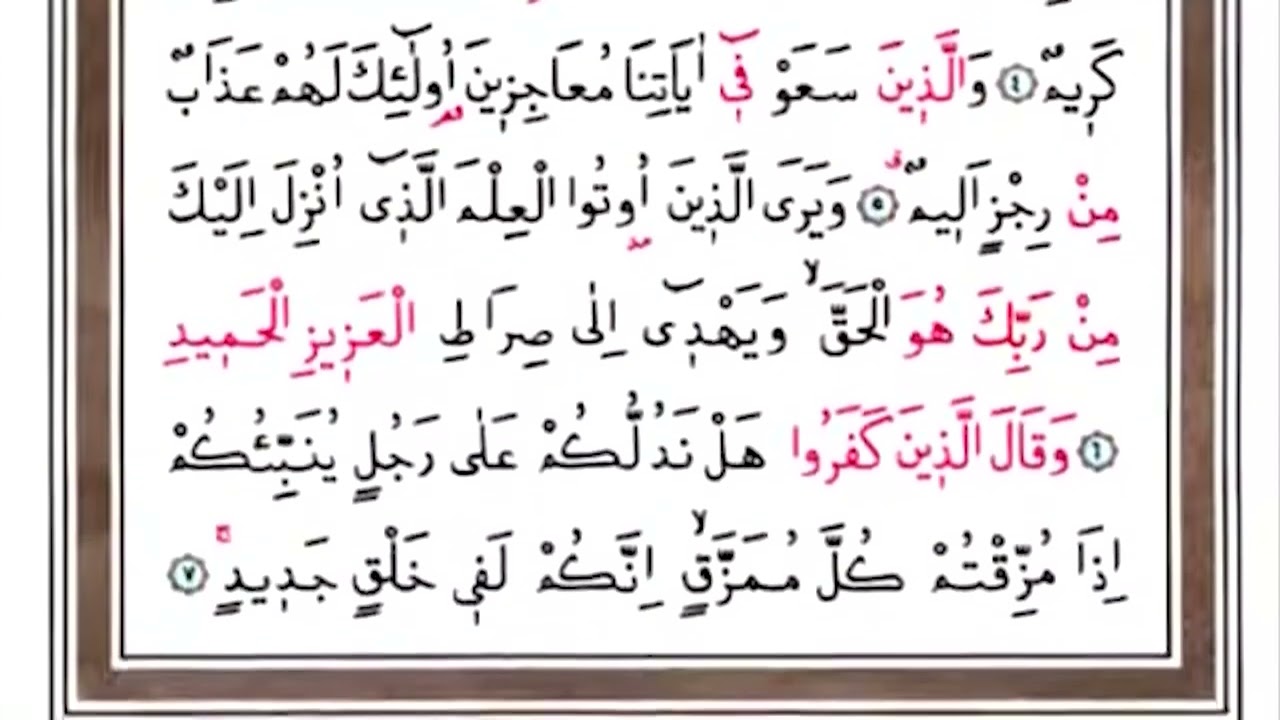 كَرٖيمٌ ﴿٤﴾ وَالَّذٖينَ سَعَوْ فٖٓى اٰيَاتِنَا مُعَاجِزٖينَ اُولٰٓئِكَ لَهُمْ عَذَابٌ
مِنْ رِجْزٍ اَلٖيمٌ ﴿٥﴾ وَيَرَى الَّذٖينَ اُوتُوا الْعِلْمَ الَّذٖٓى اُنْزِلَ اِلَيْكَ
مِنْ رَبِّكَ هُوَ الْحَقَّۙ وَيَهْدٖٓى اِلٰى صِرَاطِ الْعَزٖيزِ الْحَمٖيدِ
﴿٦﴾ وَقَالَ الَّذٖينَ كَفَرُوا هَلْ نَدُلُّكُمْ عَلٰى رَجُلٍ يُنَبِّئُكُمْ
اِذَا مُزِّقْتُمْ كُلَّ مُمَزَّقٍۙ اِنَّكُمْ لَفٖى خَلْقٍ جَدٖيدٍۚ ﴿٧﴾